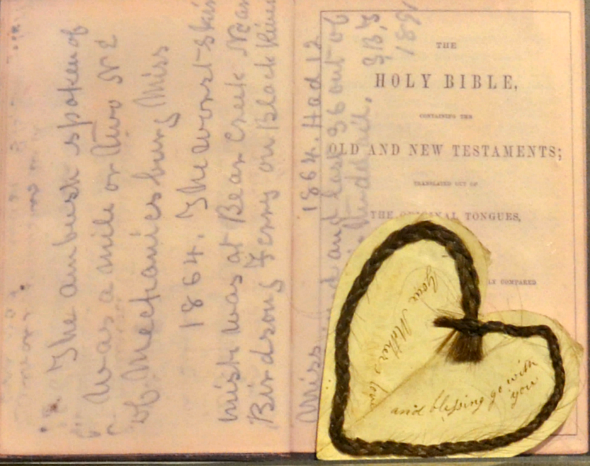 The ambush spoken of
was a mile or two NE
of Mechanicsburg Miss
1864. The worst skir
mish was at Bear Creek Near
Birdsong Ferry on Black River
Miss 1864. Had 12
and lost 36 out of
189
THE
HOLY BIBLE,
CONTAINING THE
OLD AND NEW TESTAMENTS;
TRANSLATED OUT OF
THE ORIGINAL TONGUES,
COMPARED
Mother's love
and blessing go with
you